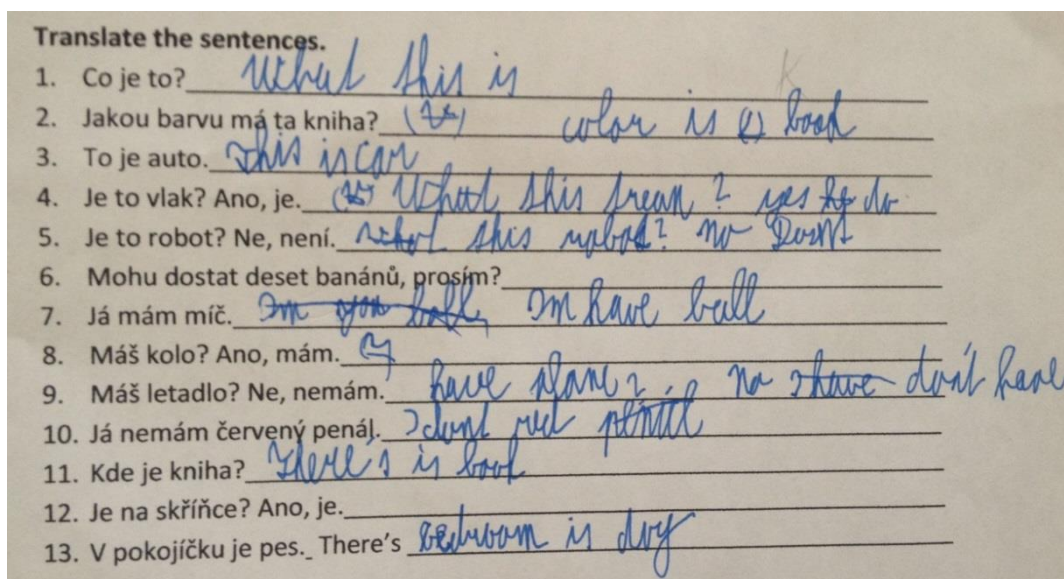 Translate the sentences.
1. Co je to? What this is
2. Jakou barvu má ta kniha? color is book
3. To je auto. This is car
4. Je to vlak? Ano, je. What this trean? yes he do
5. Je to robot? Ne, není. this robot? no Dont
6. Mohu dostat deset banánů, prosím?
7. Já mám míč. Im have ball
8. Máš kolo? Ano, mám.
9. Máš letadlo? Ne, nemám. have plane? no dont have
10. Já nemám červený penál. I dont red
11. Kde je kniha? There's is book
12. Je na skříňce? Ano, je.
13. V pokojíčku je pes. There's bedroom is dog